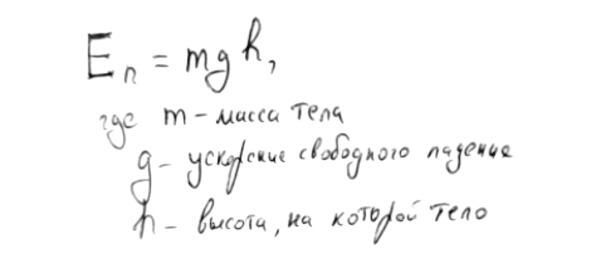 Eп = mgh,
где m - масса тела
g - ускорение свободного падение
h - высота, на которой тело